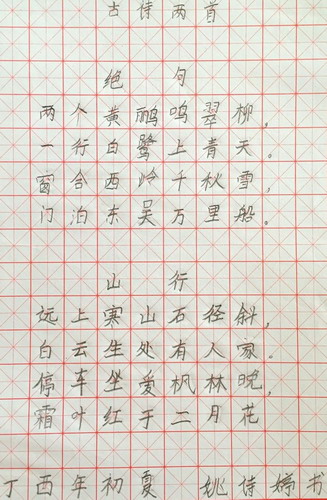 古诗两首
绝句
两个黄鹂鸣翠柳,
一行白鹭上青天。
窗含西岭千秋雪,
门泊东吴万里船。
山行
远上寒山石径斜,
白云生处有人家。
停车坐爱枫林晚,
霜叶红于二月花
丁酉年初夏 姚诗婷书